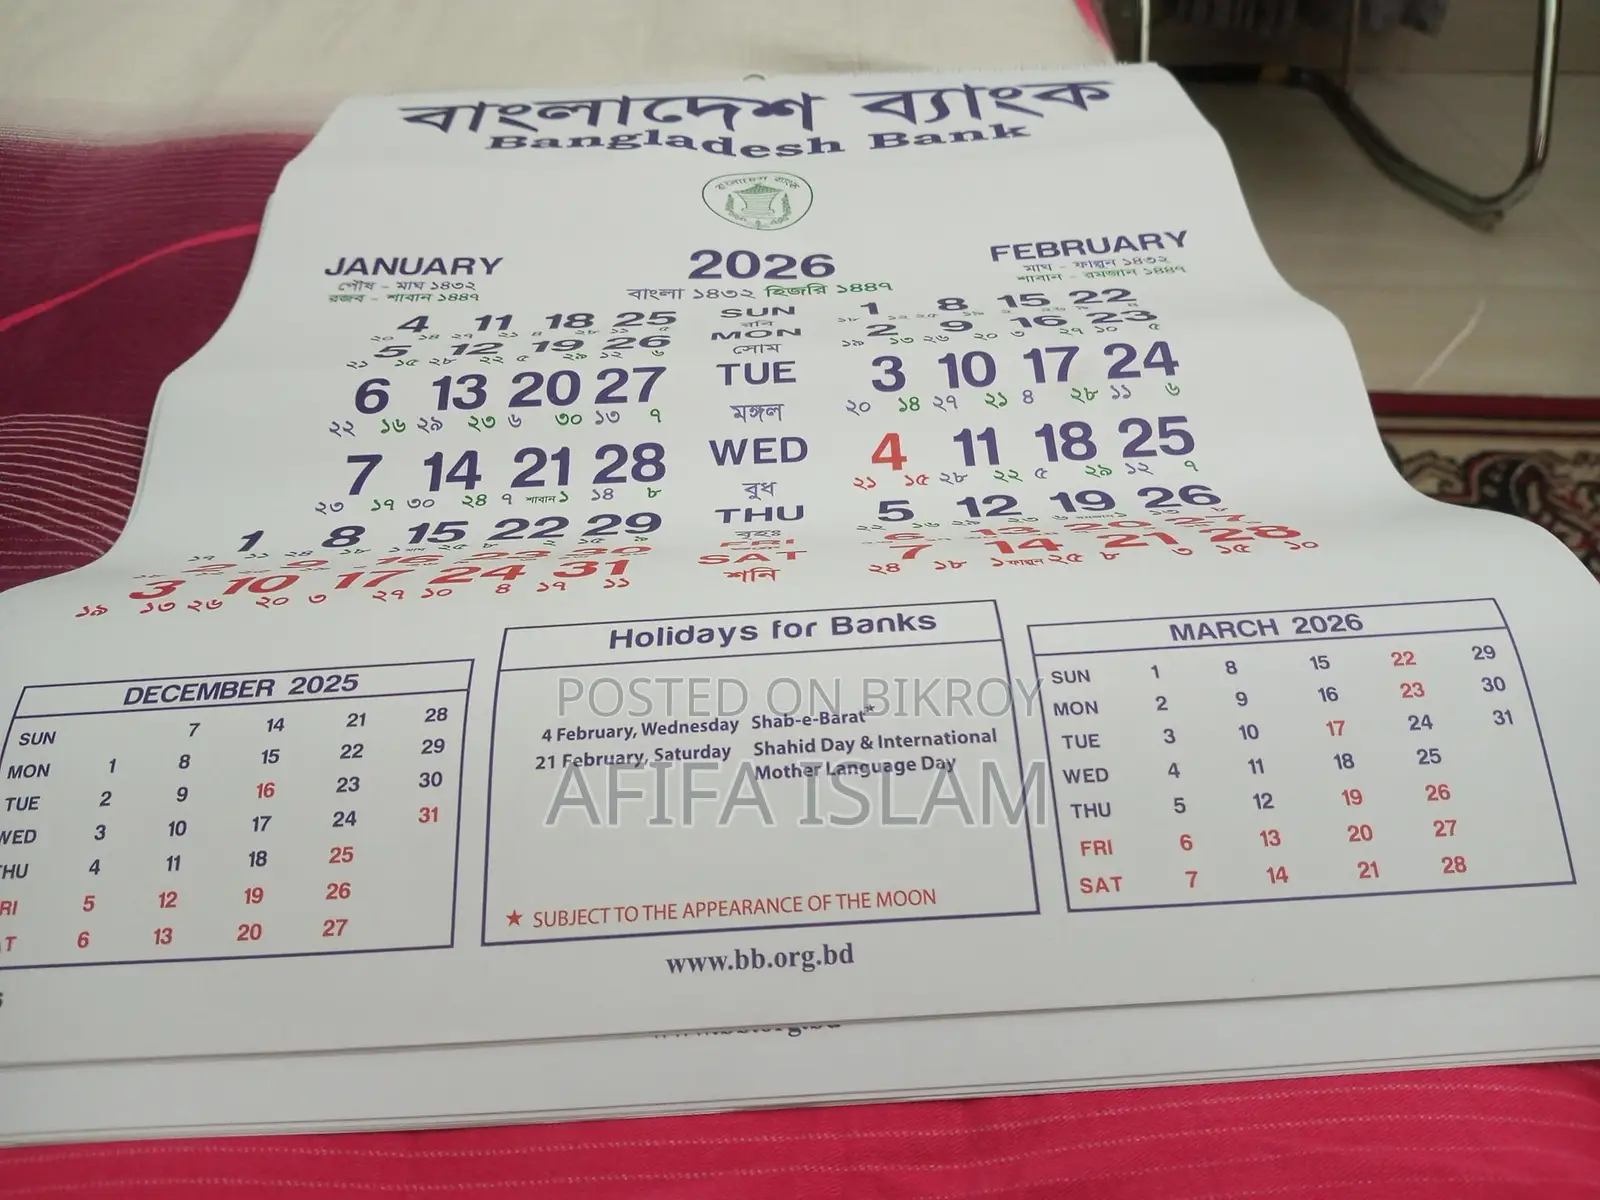 বাংলাদেশ ব্যাংক
Bangladesh Bank
বাংলাদেশ ব্যাংক
JANUARY 2026 FEBRUARY
পৌষ - মাঘ ১৪৩২ মাঘ - ফাল্গুন ১৪৩২
রজব - শাবান ১৪৪৭ বাংলা ১৪৩২ হিজরি ১৪৪৭ শাবান - রমজান ১৪৪৭
4 11 18 25 SUN 1 8 15 22
রবি
5 12 19 26 MON 2 9 16 23
২১ ১৫ ২৮ ২২ ৫ ২৯ ১২ ৬ সোম ১৯ ১৩ ২৬ ২০ ৩ ২৭ ১০ ৫
6 13 20 27 TUE 3 10 17 24
২২ ১৬ ২৯ ২৩ ৬ ৩০ ১৩ ৭ মঙ্গল ২০ ১৪ ২৭ ২১ ৪ ২৮ ১১ ৬
7 14 21 28 WED 4 11 18 25
২৩ ১৭ ৩০ ২৪ ৭ শাবান ১ ১৪ ৮ বুধ ২১ ১৫ ২৮ ২২ ৫ ২৯ ১২ ৭
1 8 15 22 29 THU 5 12 19 26
বৃহঃ
2 9 16 23 30 FRI 6 13 20 27
3 10 17 24 31 SAT 7 14 21 28
১৯ ১৩ ২৬ ২০ ৩ ২৭ ১০ ৪ ১৭ ১১ শনি ২৪ ১৮ ১ ফাল্গুন ২৫ ৮ ৩ ১৫ ১০
DECEMBER 2025
SUN 7 14 21 28
MON 1 8 15 22 29
TUE 2 9 16 23 30
WED 3 10 17 24 31
THU 4 11 18 25
RI 5 12 19 26
T 6 13 20 27
Holidays for Banks
4 February, Wednesday Shab-e-Barat*
21 February, Saturday Shahid Day & International
Mother Language Day
★ SUBJECT TO THE APPEARANCE OF THE MOON
MARCH 2026
SUN 1 8 15 22 29
MON 2 9 16 23 30
TUE 3 10 17 24 31
WED 4 11 18 25
THU 5 12 19 26
FRI 6 13 20 27
SAT 7 14 21 28
www.bb.org.bd
POSTED ON BIKROY
AFIFA ISLAM